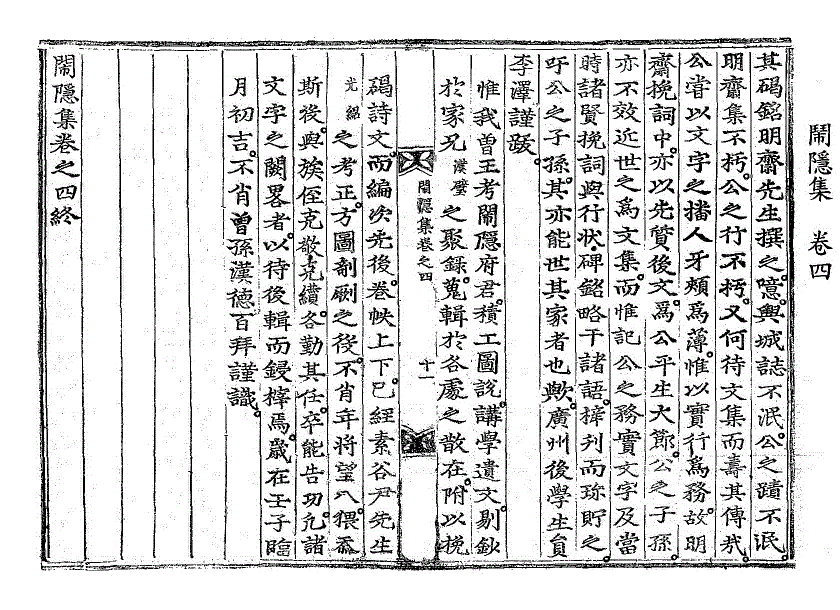 鬧隱集 卷四
其碣銘明齋先生撰之噫輿城誌不泯公之蹟不泯
明齋集不朽公之行不朽又何待文集而壽其傳哉
公嘗以文字之播人牙頰爲薄惟以實行爲務故明
齋挽詞中亦以先質後文爲公平生大節公之子孫
亦不效近世之爲文集而惟記公之務實文字及當
時諸賢挽詞與行狀碑銘略干諸語榟列而珎貯之
吁公之子孫其亦能世其家者也歟廣州後學生員
李澤謹跋
惟我曽王考鬧隱府君積工圖說講學遺文剔鈔
於家兄漢璧之聚錄蒐輯於各處之散在附以挽
鬧隱集卷之四 十一
碣詩文而編次先後卷帙上下已經素谷尹先生
光紹之考正方圖剞劂之役不肖年將望八猥忝
斯後與族侄克敬克纘各勤其任卒能告功凢諸
文字之闕畧者以待後輯而鋟榟焉歲在壬子臨
月初吉不肖曽孫漢德百拜謹識
鬧隱集卷之四終